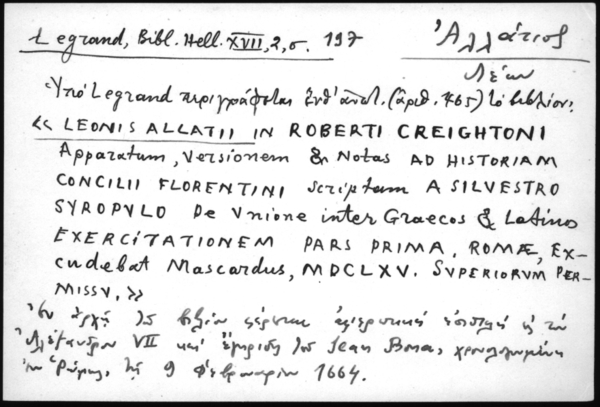 Legrand, Bibl. Hell. XVII, 2, σ. 197
Ἀλλάτιος
Λέων
Ὑπό Legrand περιγράφεται ἐνθ' ἀνωτ. (ἀριθ. 465) τὸ βιβλίον:
<< LEONIS ALLATII IN ROBERTI CREIGHTONI
Apparatum, Versionem & Notas AD HISTORIAM
CONCILII FLORENTINI scriptam A SILVESTRO
SYROPVLO De Vnione inter Graecos & Latinos
EXERCITATIONEM PARS PRIMA. ROMÆ, EX-
cudebat Mascardus, MDCLXV. SVPERIORVM PER-
MISSV. >>
Ἐν ἀρχῇ τοῦ βιβλίου φέρεται ἀφιερωτική ἐπιστολή εἰς τὸν
Ἀλέξανδρον VII καὶ τοῦ Jean Bona, χρονολογουμένη
ἐν Ῥώμῃ, τῇ 9 Φεβρουαρίου 1664.